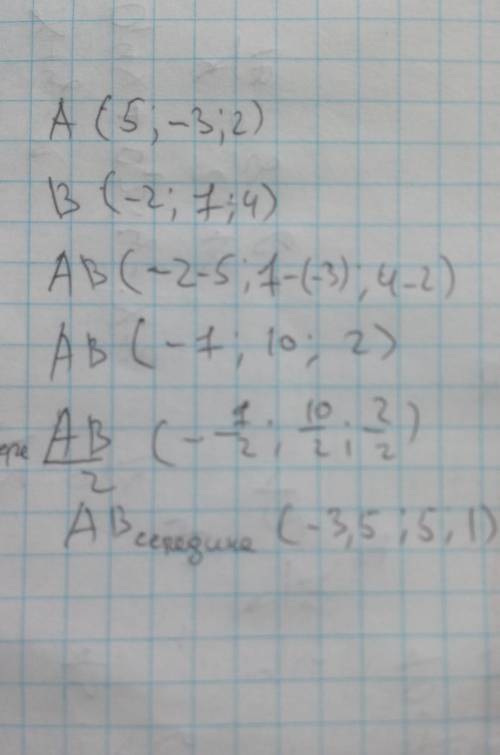 A (5; -3; 2)
B (-2; 7; 4)
AB (-2-5; 7-(-3); 4-2)
AB (-7; 10; 2)
AB/2 (-7/2; 10/2; 2/2)
AB середина (-3,5; 5, 1)